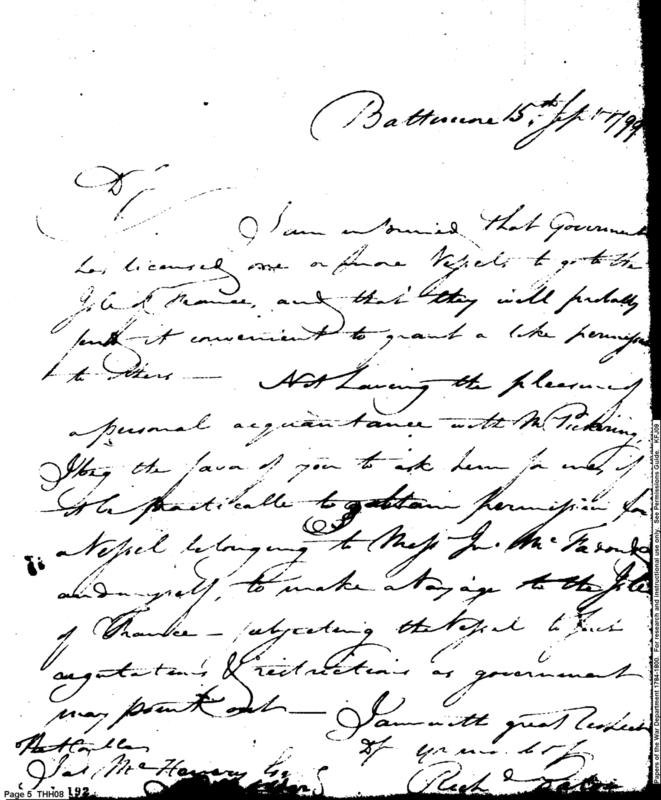 Baltimore 15th Sept 1799
Dr Sr
I am informed that Government
has licensed one or more Vessels to go to the
Isle of France, and that they will probably
find it convenient to grant a like permission
to others — Not having the pleasure of
a personal acquaintance with Mr Pickering,
I beg the favor of you to ask him for me, if
it be practicable to obtain permission for
a Vessel belonging to Mess Jn. McFadon &
and myself, to make a Voyage to the Isle
of France — subjecting the Vessel to such
regulations & restrictions as government
may point out — I am with great Respect
Dr yrs
Jas McHenry Esq
Richd
Page 5 THH08 192
Papers of the War Department 1784-1800. For research and instructional use only. See Permissions Guide. KFJ09